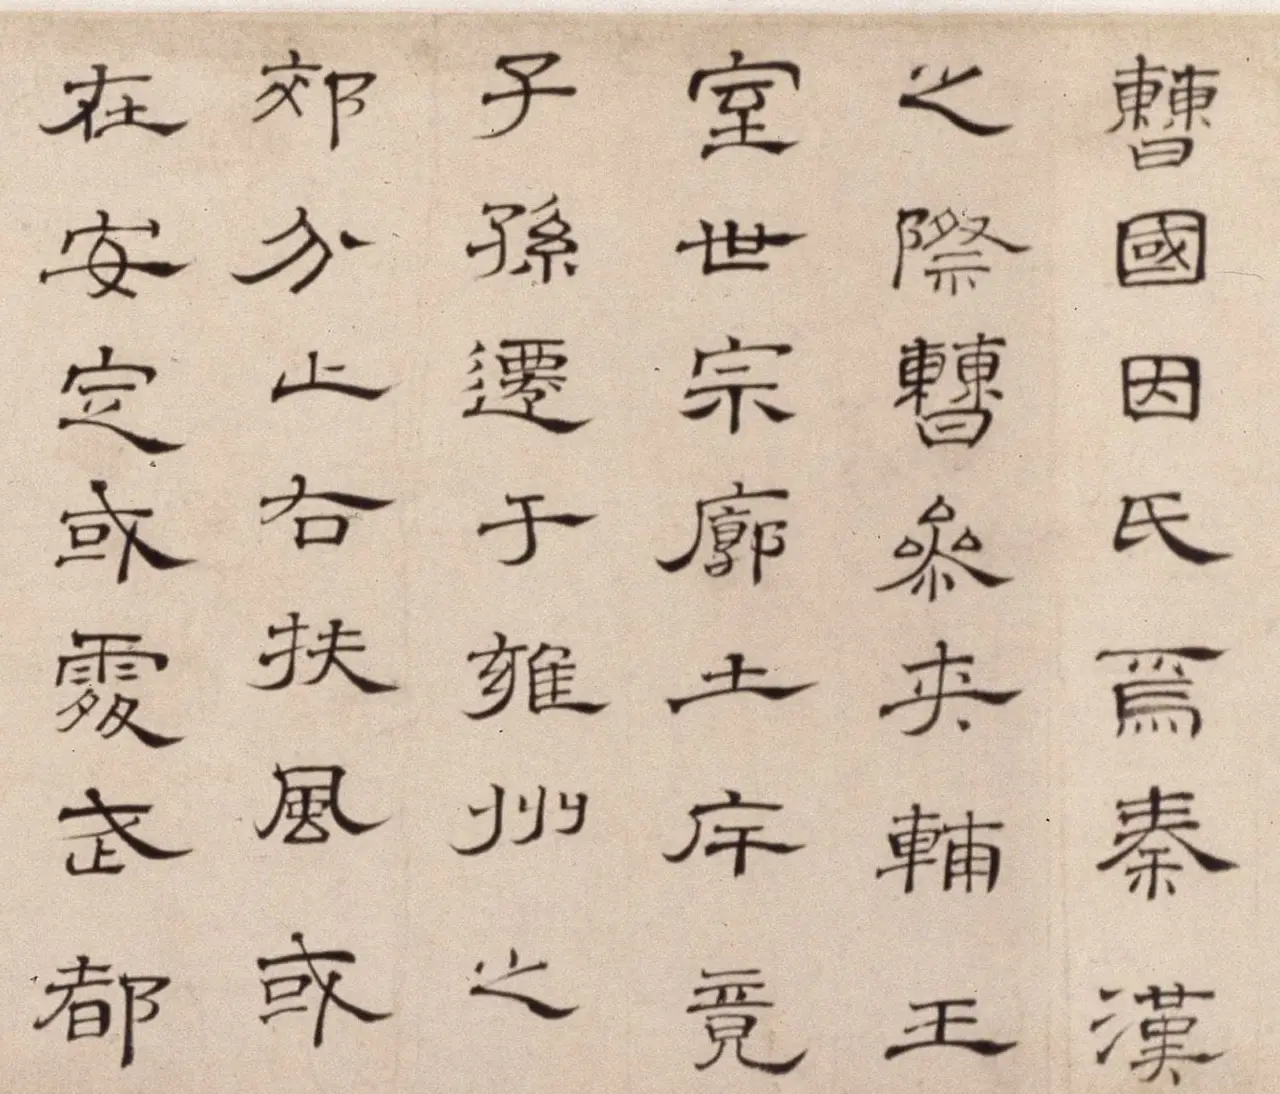 曹國因氏焉秦漢
之際曹參夾輔王
室世宗廓土庁竟
子孫遷于雍州之
郊分止右扶風或
在安定或處武都